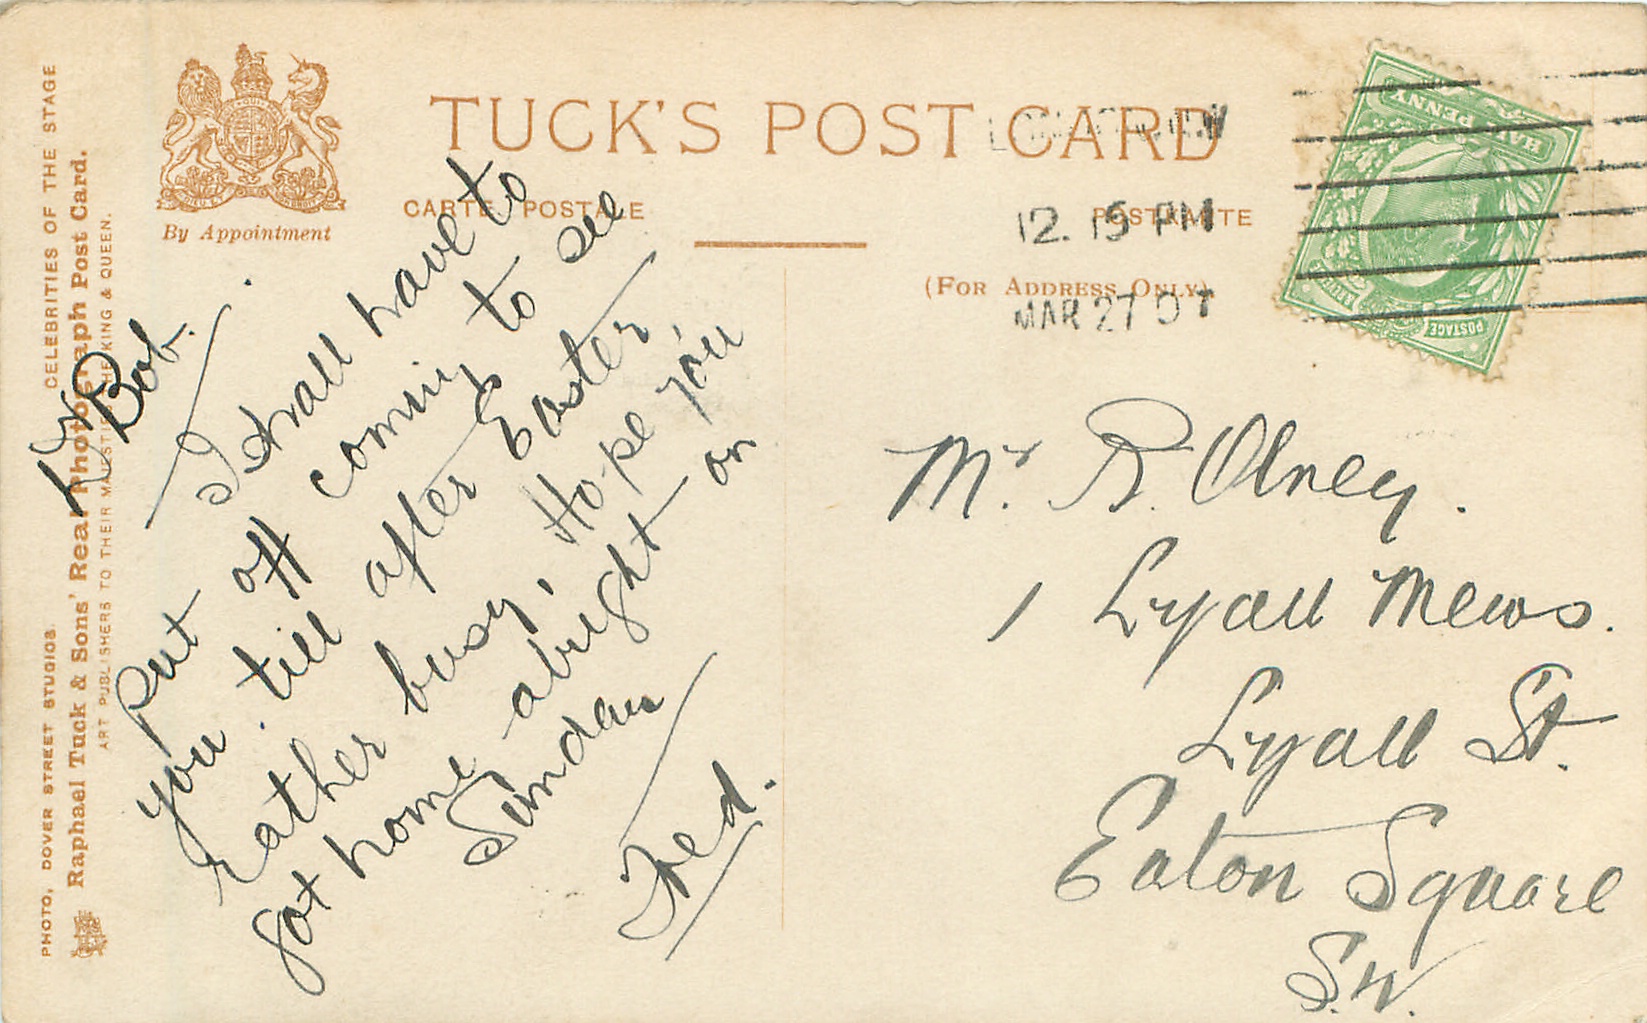 TUCK'S POST CARD
CARTE POSTALE
POSTKARTE
(FOR ADDRESS ONLY)
By Appointment
CELEBRITIES OF THE STAGE
PHOTO, DOVER STREET STUDIOS.
Raphael Tuck & Sons' Real Photograph Post Card.
ART PUBLISHERS TO THEIR MAJESTIES THE KING & QUEEN.
12.15 PM
MAR 27 07
HALF PENNY
POSTAGE
Dr Bob.
I shall have to
put off coming to see
you till after Easter
rather busy, Hope you
got home alright on
Sunday
Fred.
Mr R. Olney.
1 Lyall Mews.
Lyall St.
Eaton Square
S.W.